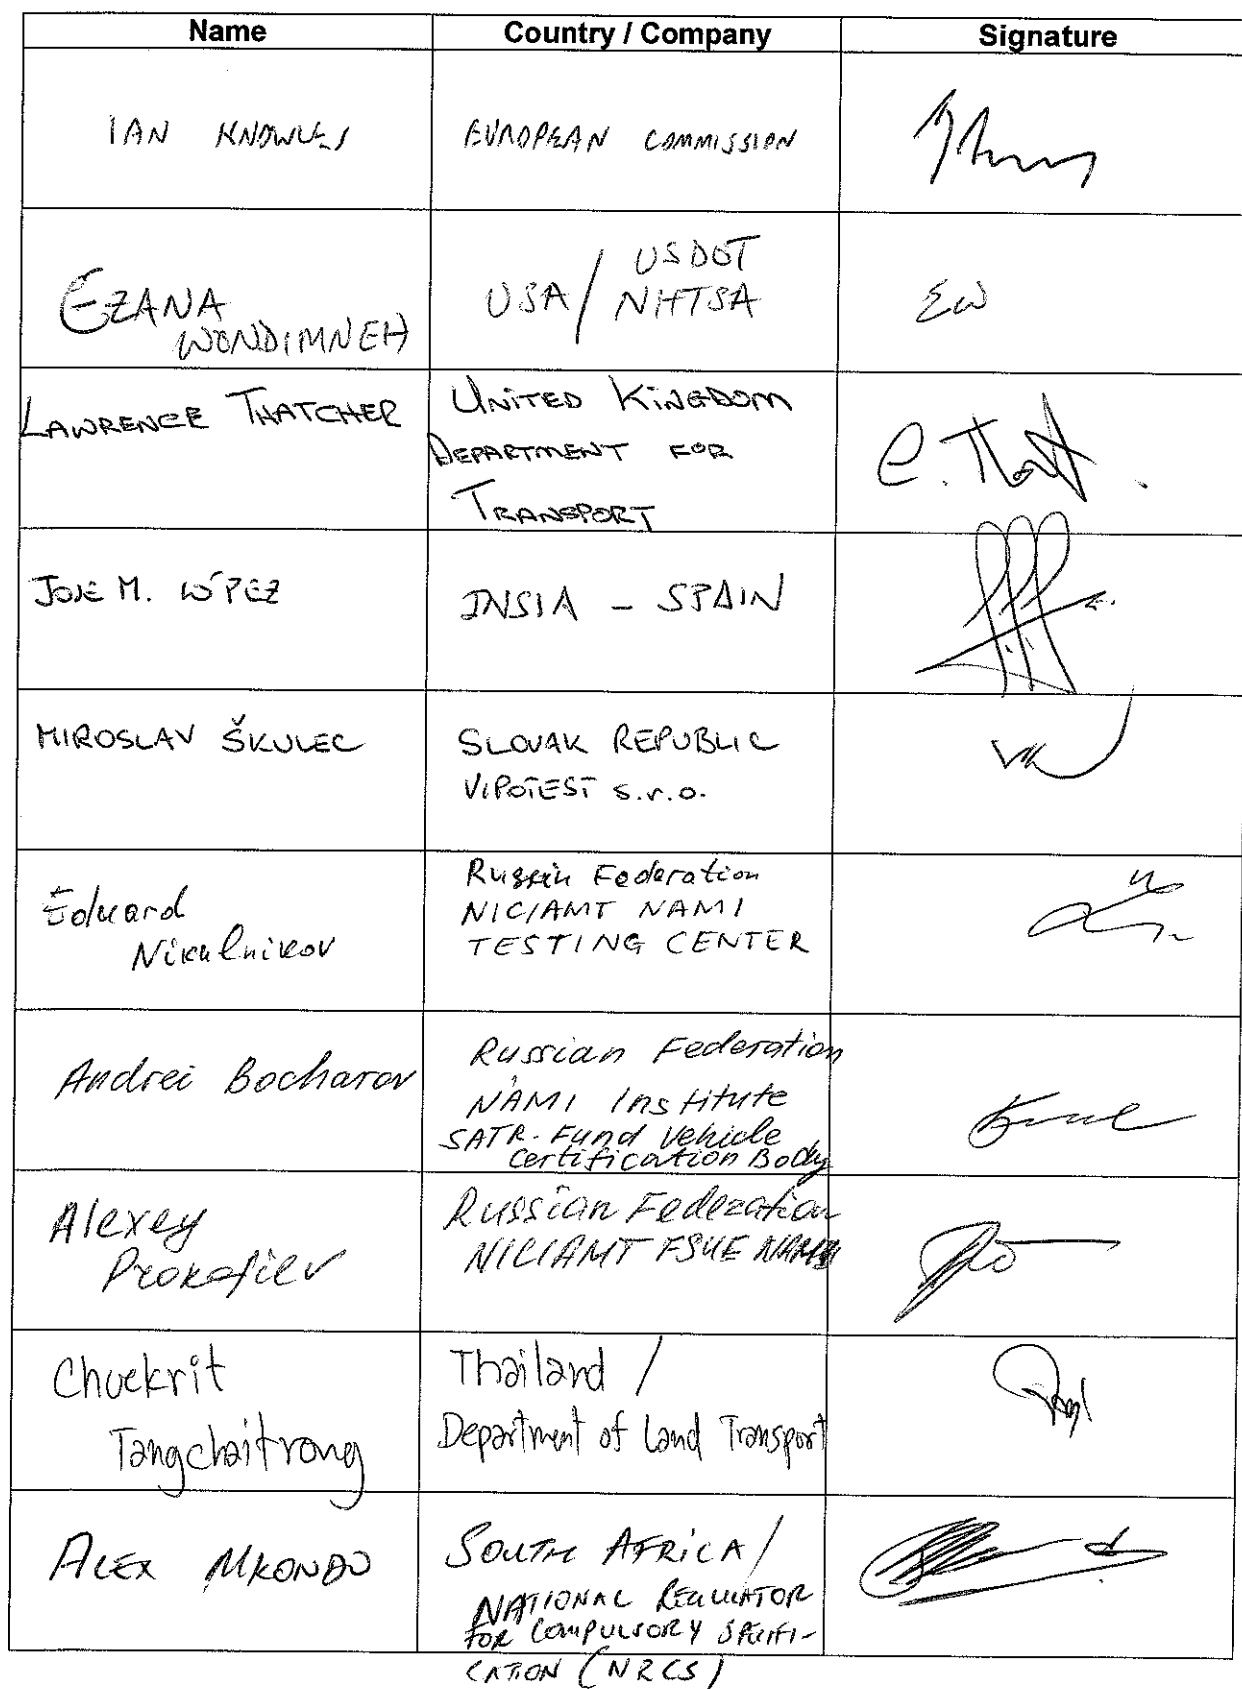 Name Country / Company Signature
IAN KNOWLES EUROPEAN COMMISSION
EZANA
WONDIMNEH
USA / USDOT
NHTSA
EW
LAWRENCE THATCHER
UNITED KINGDOM
DEPARTMENT FOR
TRANSPORT
JOSE M. LÓPEZ INSIA - SPAIN
MIROSLAV ŠKULEC
SLOVAK REPUBLIC
VIPOTEST s.r.o.
Eduard
Nikulnikov
Russian Federation
NICIAMT NAMI
TESTING CENTER
Andrei Bocharov
Russian Federation
NAMI Institute
SATR-Fund Vehicle
Certification Body
Alexey
Prokofiev
Russian Federation
NICIAMT FSUE NAMI
Chuekrit
Tangchaitrong
Thailand /
Department of Land Transport
ALEX MKONDO
SOUTH AFRICA /
NATIONAL REGULATOR
FOR COMPULSORY SPECIFI-
CATION (NRCS)